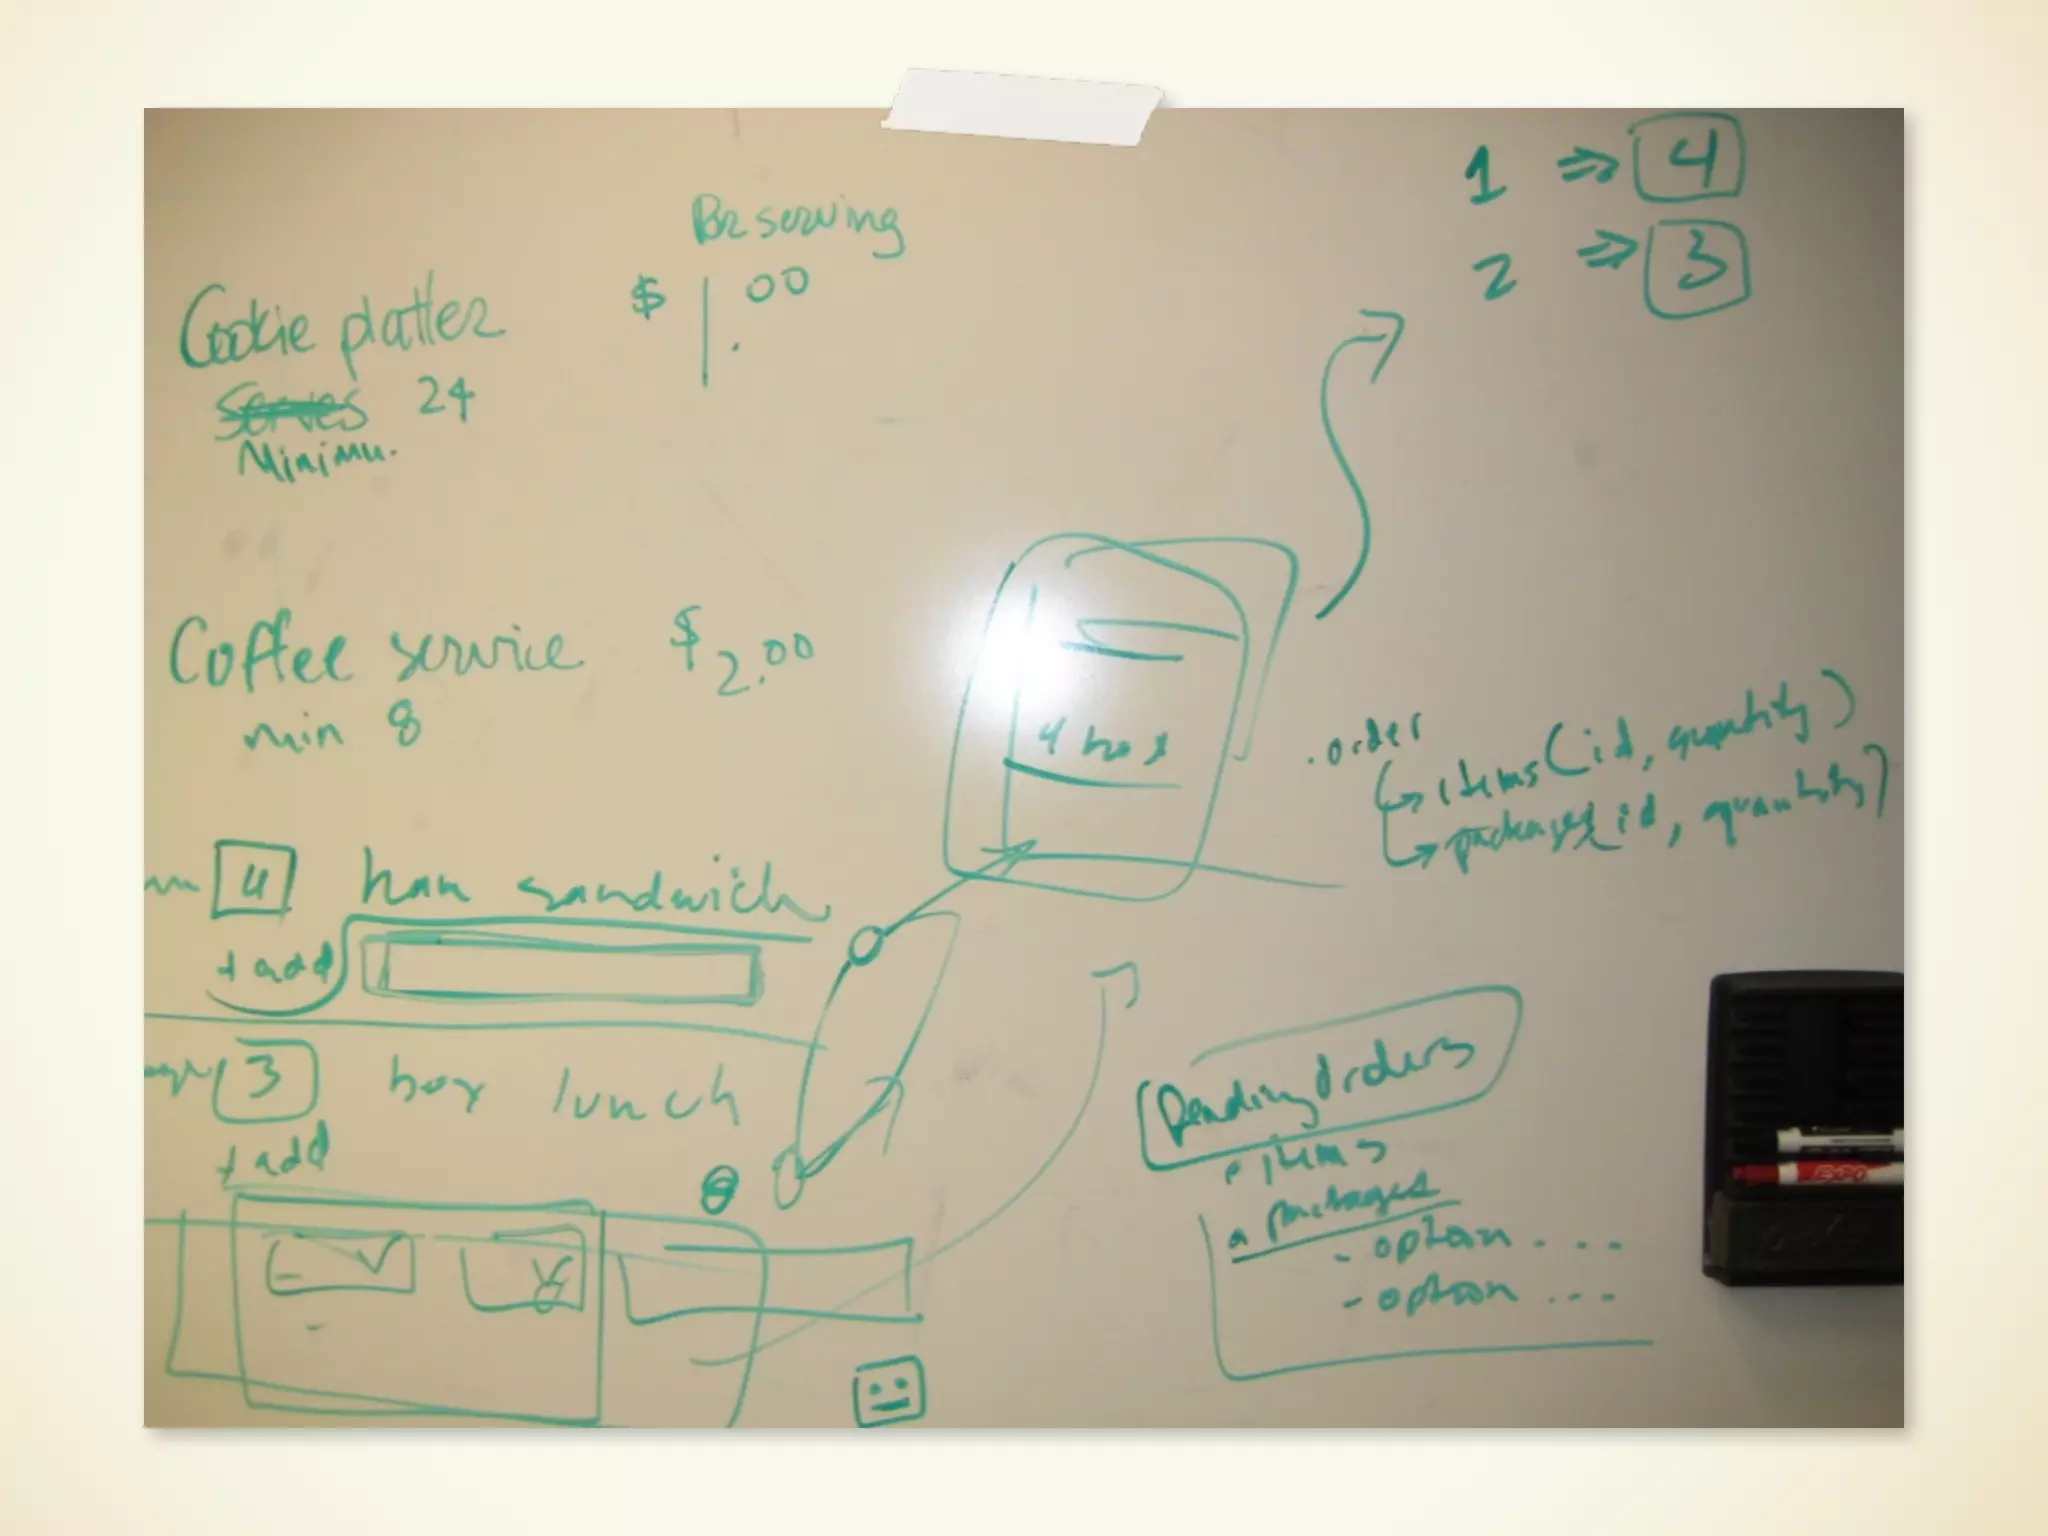 1 ⇒ 4
2 ⇒ 3
serving
Cookie platter $ 1.00
serves 24
Minimu.
Coffee service $ 2.00
min 8
4 box
.order
↳ items (id, quantity)
↳ packages(id, quantity)
4 ham sandwich
+ add
3 box lunch
+ add
Pending Orders
• items
packages
- option . . .
- option . . .
EXPO